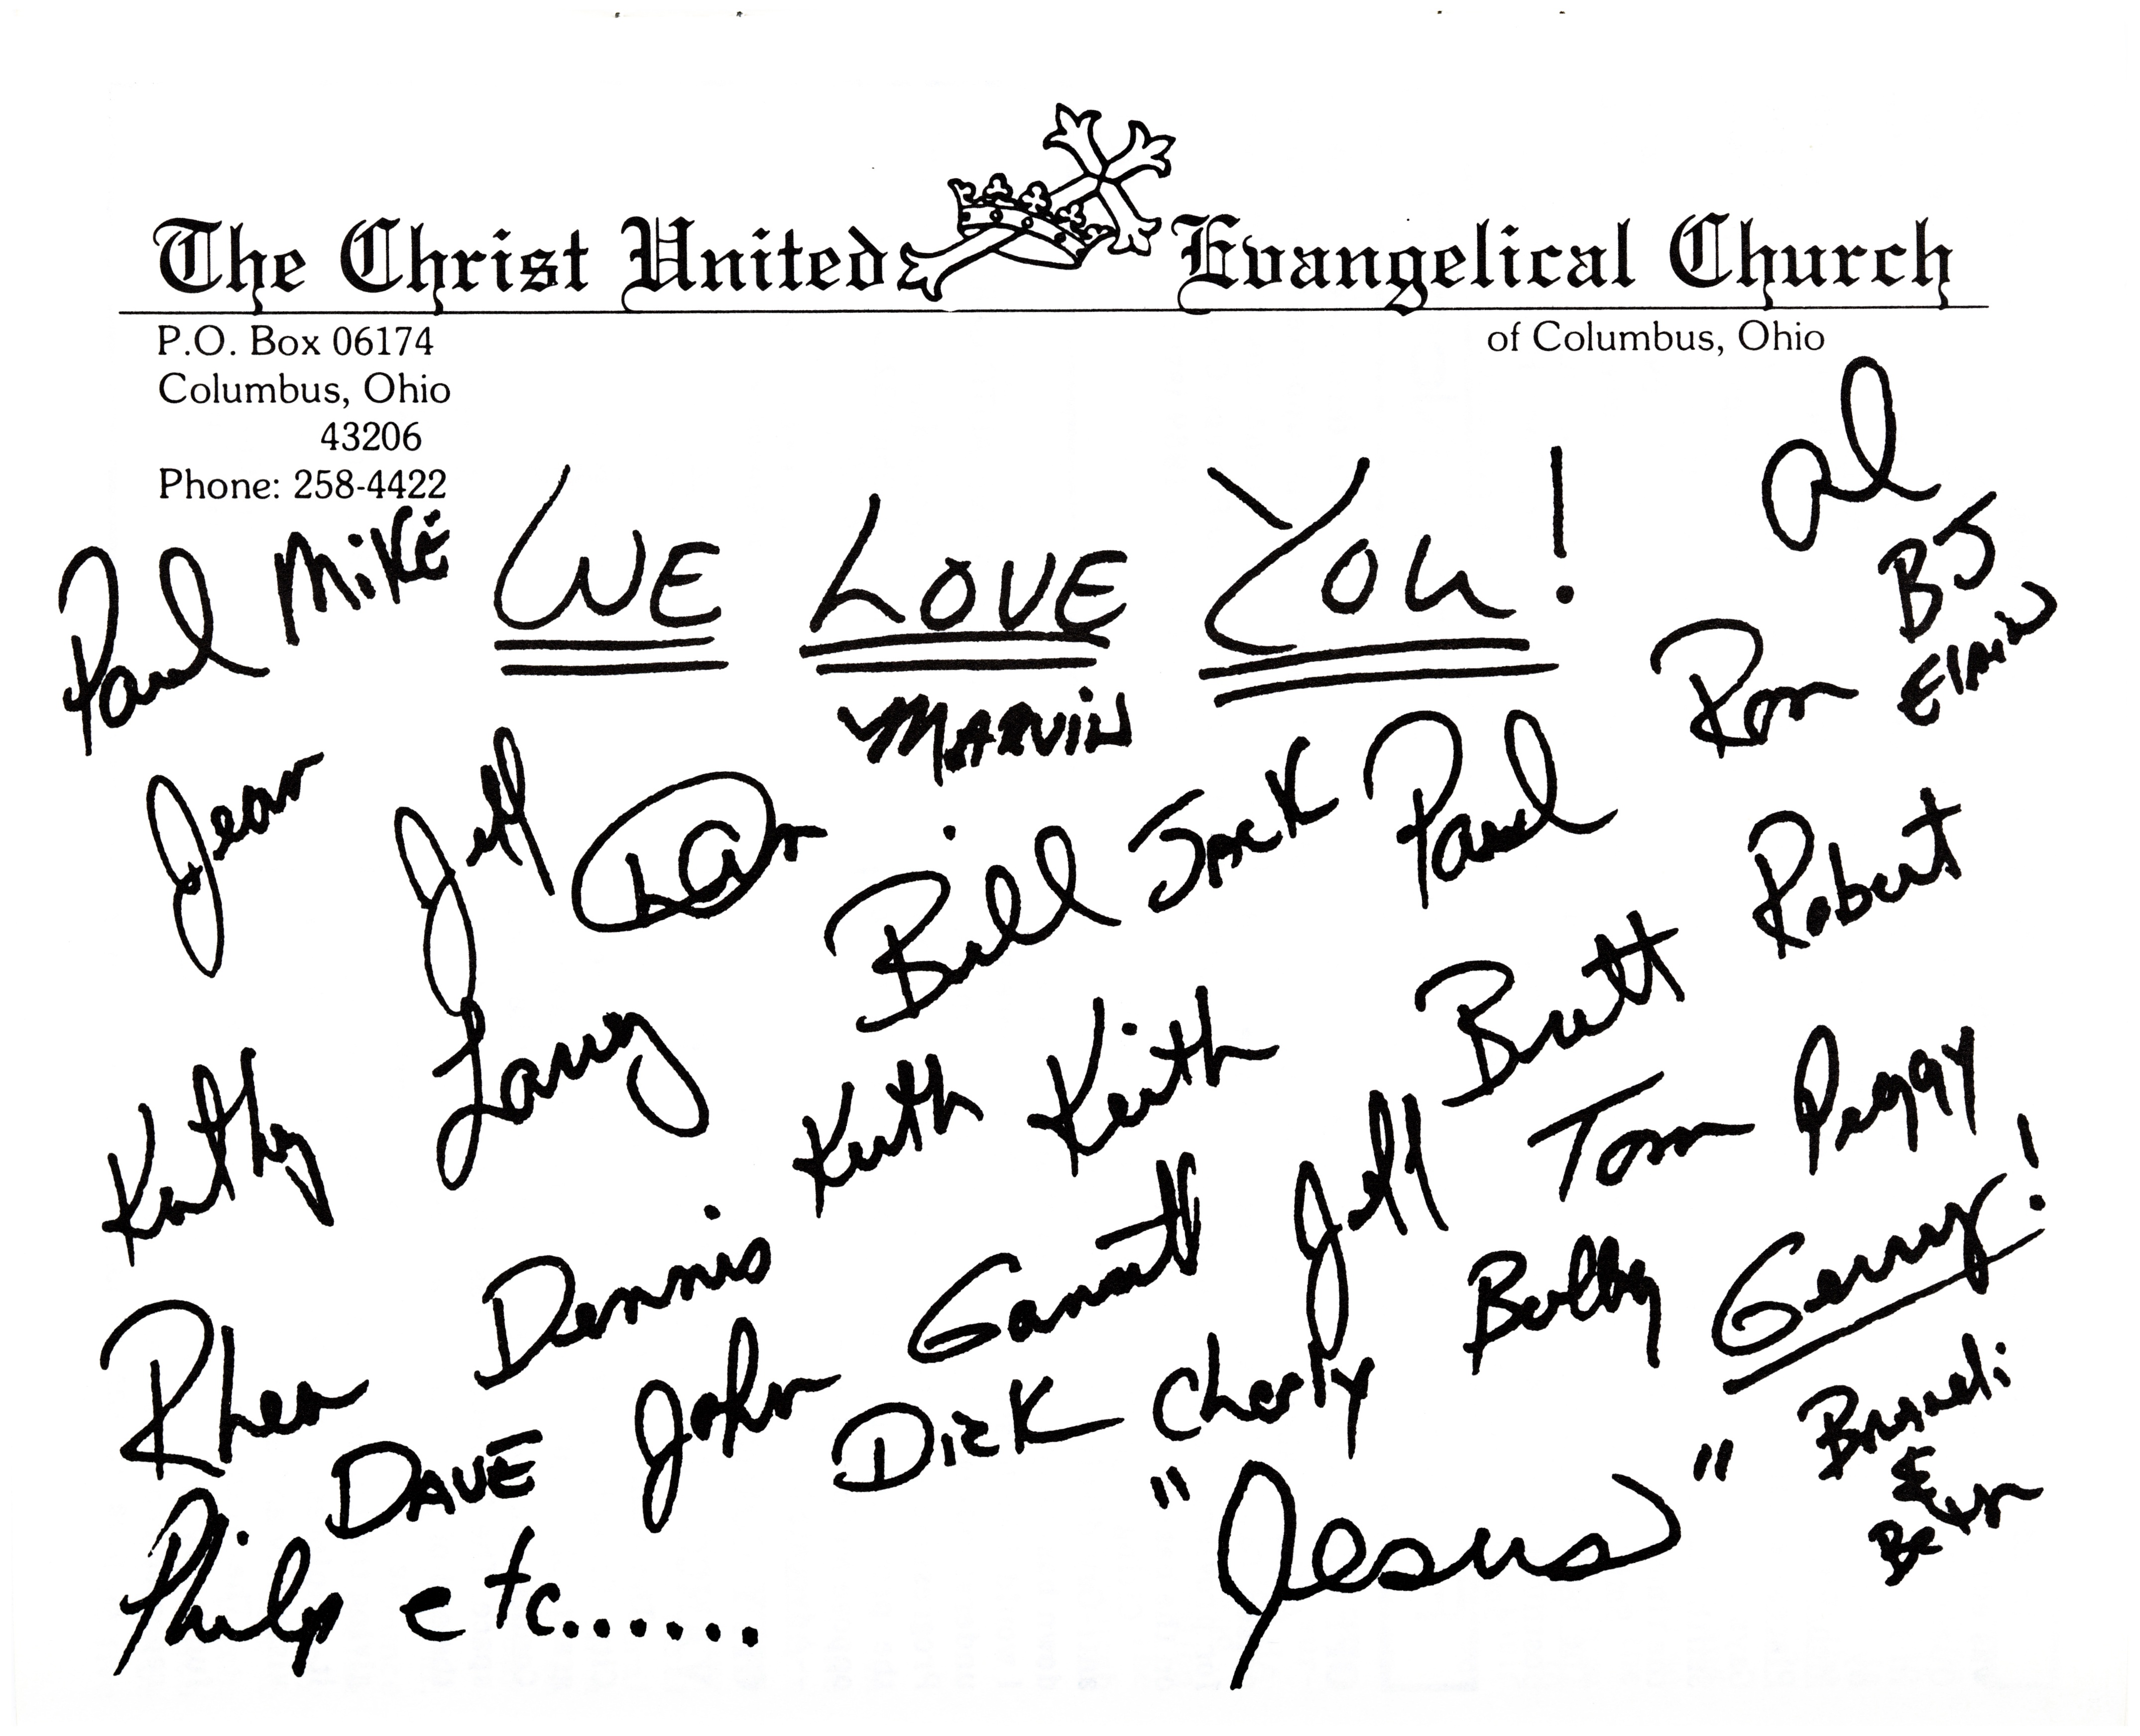 The Christ United Evangelical Church
P.O. Box 06174
of Columbus, Ohio
Columbus, Ohio
43206
Phone: 258-4422
Al
Paul Mike
WE LOVE YOU!
BJ
Ron
MARVIN
Jean
Jeff
Dan
Bill
Jack
Paul
Robert
Kathy
Larry
Keith
Keith
Tom
Peggy
Jeff
Dennis
Bobby
Gerry!
Rhea
DAVE
John
DicK
Philip etc.......
"Jesus"
&